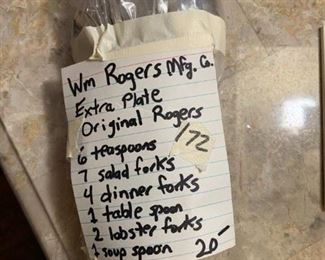 Wm Rogers Mfg. Co.
Extra Plate
Original Rogers
172
6 teaspoons
7 salad forks
4 dinner forks
1 table spoon
2 lobster forks
1 soup spoon 20-